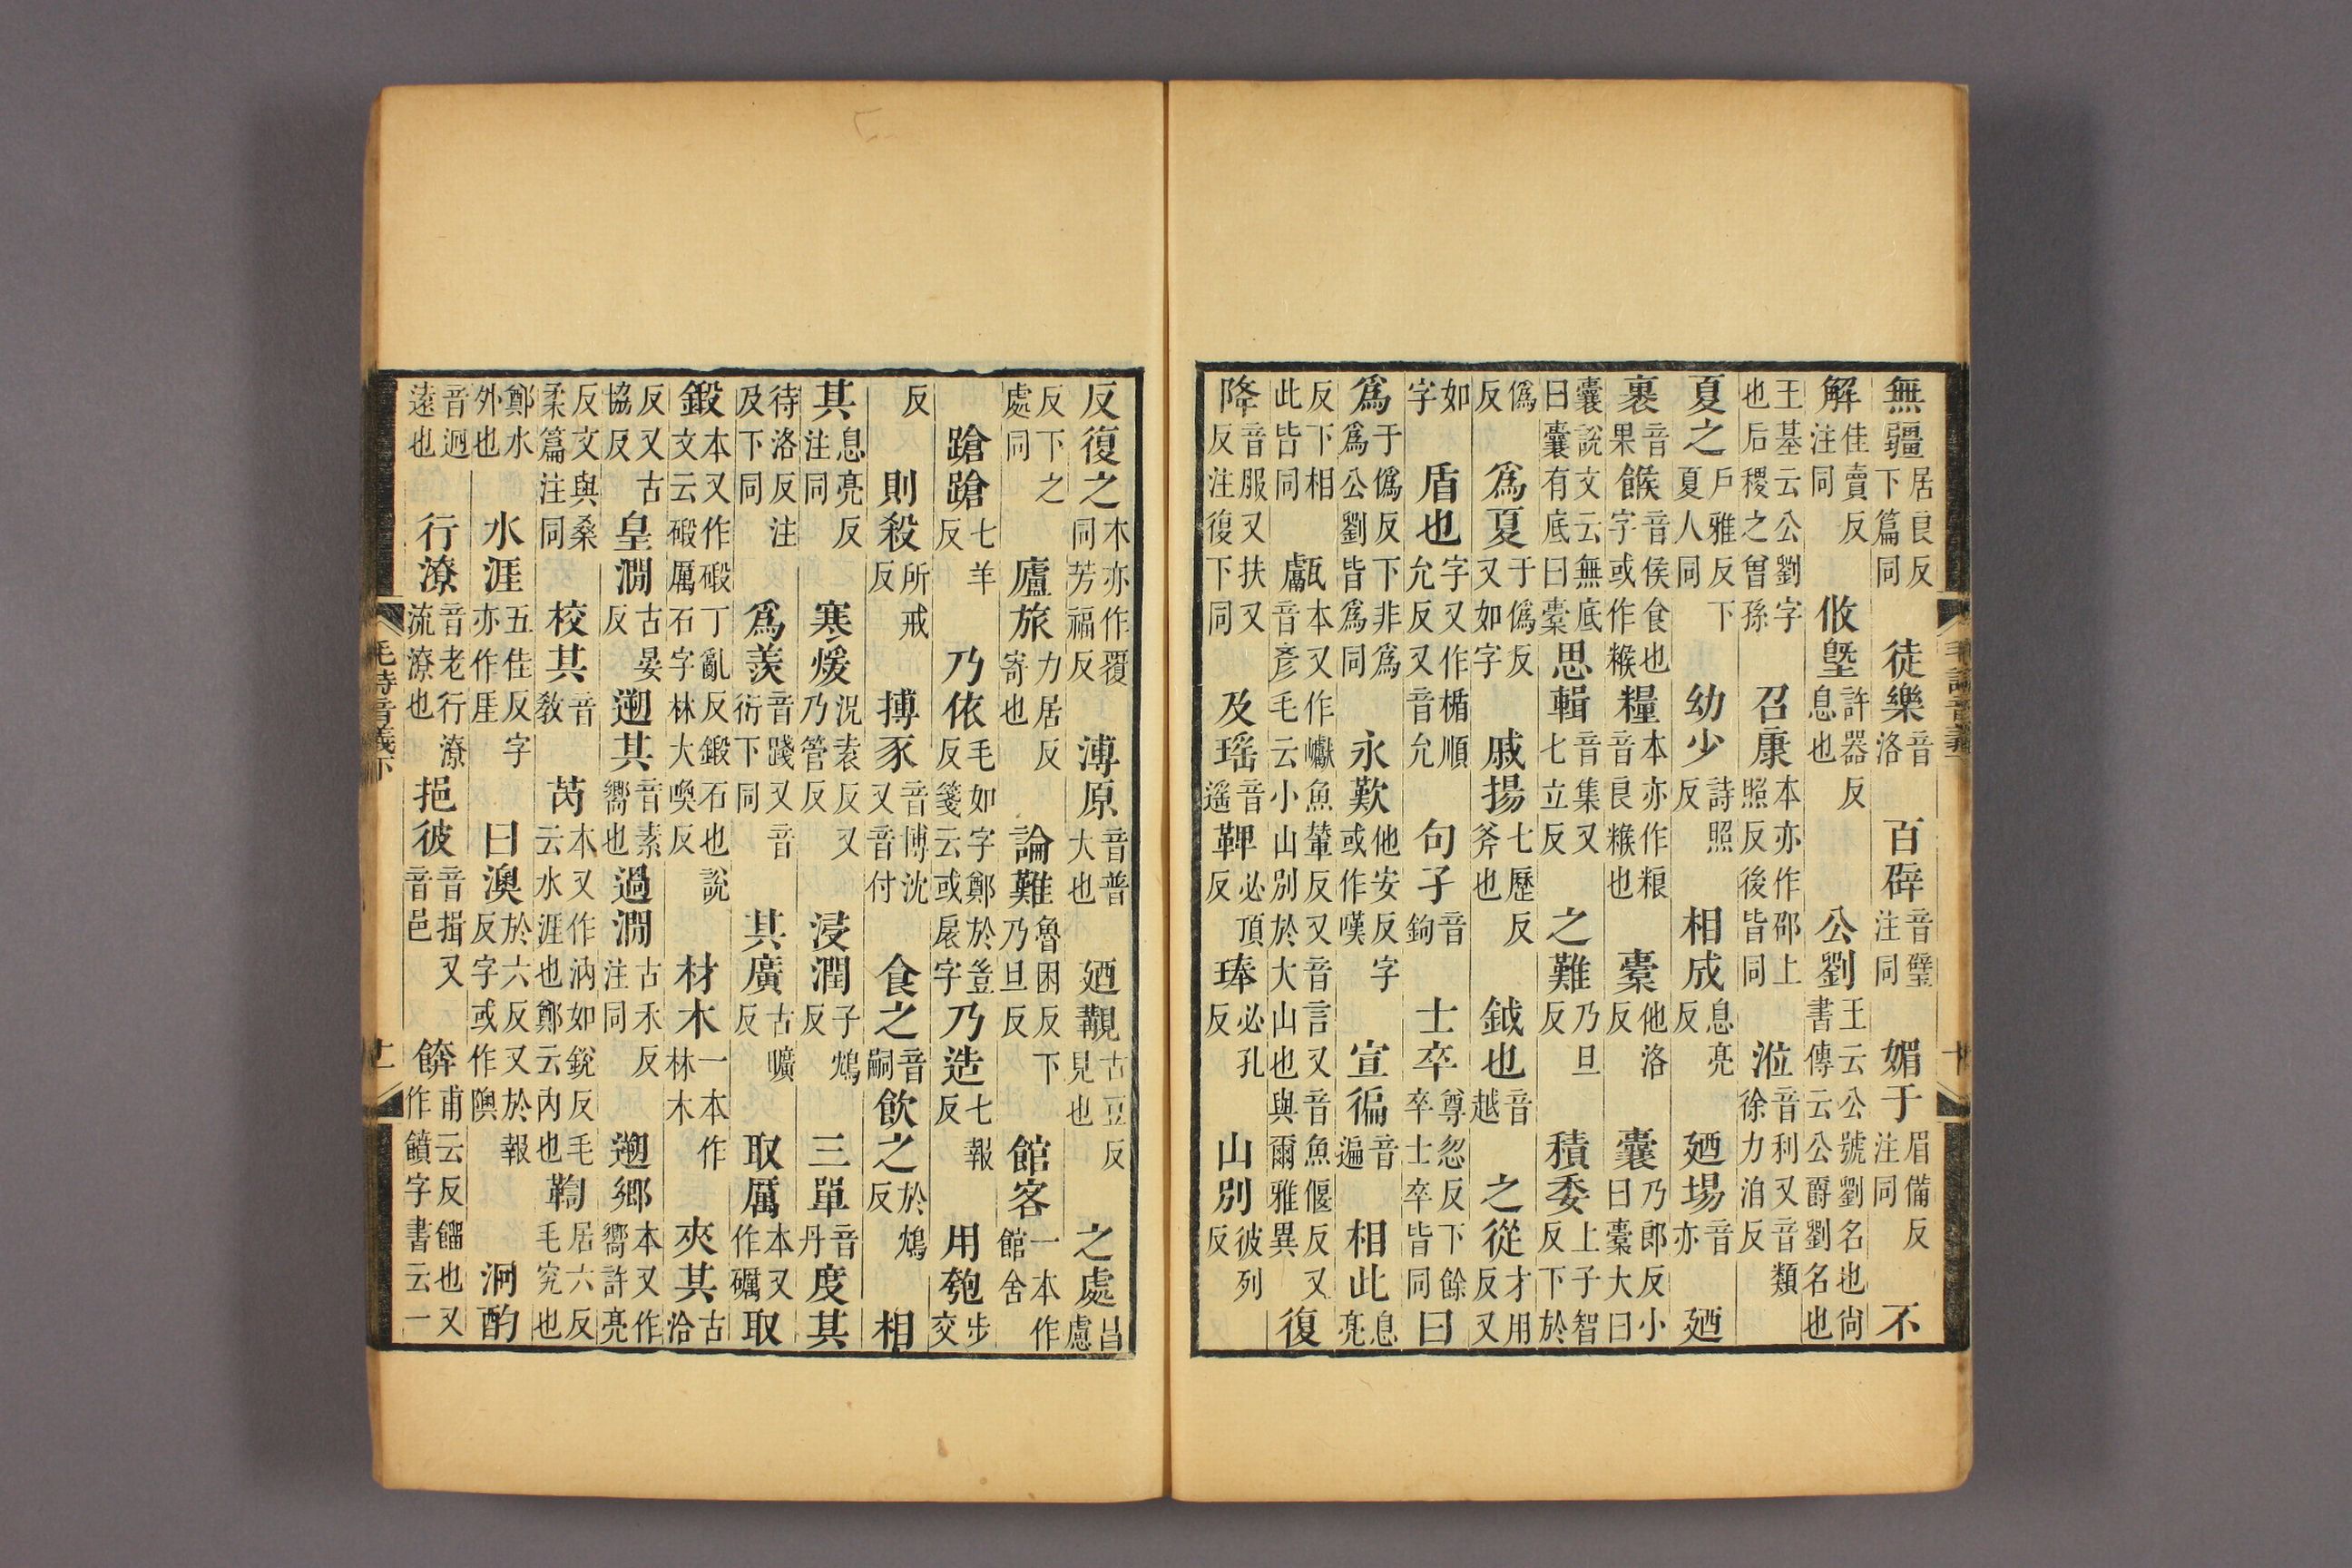 無疆居良反下篇同徒樂音洛百辟音璧注同媚于眉備反注同不
解佳賣反注同攸塈許器反息也公劉王云公號劉名也尚書傳云公爵劉名也
王基云公劉字也后稷之曾孫召康本亦作邵上照反後皆同涖音利又音類徐力洎反
夏之戶雅反下夏人同幼少詩照反相成息亮反廼埸音亦廼
裹音果餱音侯食也字或作糇糧本亦作粮音良糇也橐他洛反囊乃郎反小曰橐大曰
囊說文云無底曰囊有底曰橐思輯音集又七立反之難乃旦反積委上子智反下於
僞反爲夏于僞反又如字戚揚七歷反斧也鉞也音越之從才用反又
如字盾也字又作楯順允反又音允句孑音鉤士卒尊忽反下餘卒士卒皆同曰
爲于僞反下非爲爲公劉皆爲同永歎他安反字或作嘆宣徧音遍相此息亮
反下相此皆同甗本又作巘魚輦反又音言又音魚偃反又音彥毛云小山別於大山也與爾雅異復
降音服又扶又反注復下同及瑤音遙鞞必頂反琫必孔反山別彼列反
反復之本亦作覆同芳福反溥原音普大也廼覯古豆反見也之處昌慮
反下之處同廬旅力居反寄也論難魯困反下乃旦反館客一本作館舍
蹌蹌七羊反乃依毛如字鄭於豈反箋云或扆字乃造七報反用匏步交
反則殺所戒反搏豕音博沈又音付食之音嗣飲之於鴆反相
其息亮反注同寒煖況袁反又乃管反浸潤子鴆反三單音丹度其
待洛反注及下同爲羨音踐又音衍下同其廣古曠反取厲本又作礪取
鍛本又作碫丁亂反鍛石也說文云碫厲石字林大喚反材木一本作林木夾其古洽
反又古協反皇澗古晏反遡其音素嚮也過澗古禾反注同遡鄉本又作嚮許亮
反文與桑柔篇注同校其音教芮本又作汭如銳反毛云水涯也鄭云內也鞫居六反毛究也
鄭水外也水涯五佳反字亦作厓曰澳於六反又於報反字或作隩泂酌
音迥遠也行潦音老行潦流潦也挹彼音揖又音邑餴甫云反餾也又作饙字書云一
毛詩音義下 十一